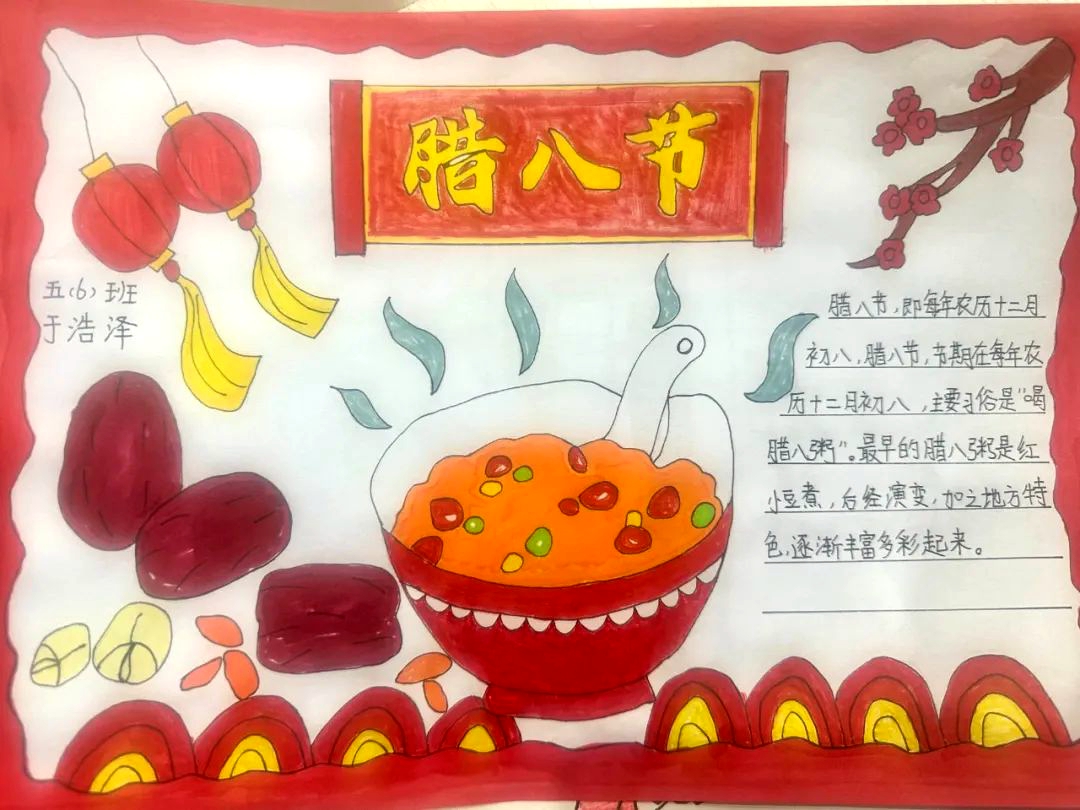 腊八节
五(6)班
于浩泽
腊八节,即每年农历十二月
初八,腊八节,节期在每年农
历十二月初八,主要习俗是"喝
腊八粥"。最早的腊八粥是红
小豆煮,后经演变,加之地方特
色,逐渐丰富多彩起来。